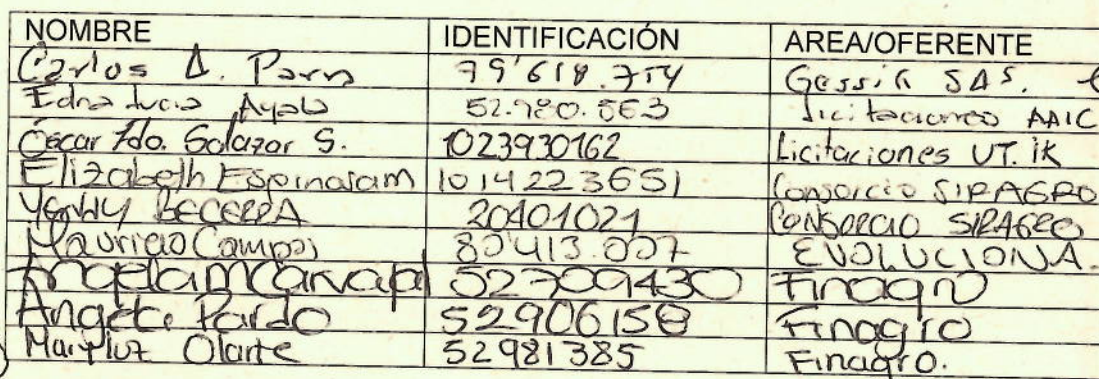 NOMBRE IDENTIFICACIÓN AREA/OFERENTE
Carlos A. Parra 79'618.754 Gessik SAS.
Edna Lucia Ayala 52.780.563 Licitaciones AAIC
Óscar Fdo. Salazar S. 1023930162 Licitaciones UT. IK
Elizabeth Espinosa m 1014223651 Consorcio SIRAGRO
Yenny BECERRA 20401021 CONSORCIO SIRAGRO
Mauricio Campos 80'413.007 EVOLUCIONA.
Angela M Carvajal 52709430 Finagro
Angela Pardo 52906158 Finagro
Mary luz Olarte 52981385 Finagro.